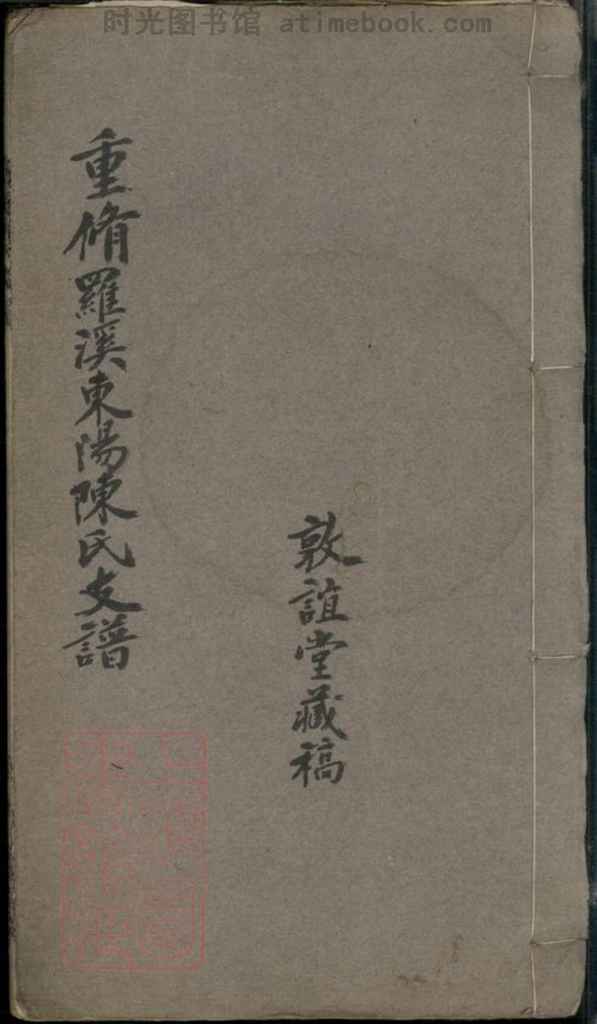 时光图书馆 atimebook.com
重脩羅溪東陽陳氏支譜
敦誼堂藏稿